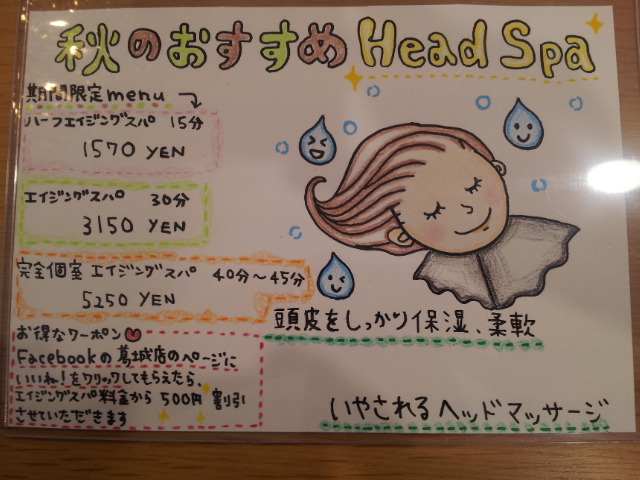 秋のおすすめ Head Spa
期間限定menu
ハーフエイジングスパ 15分
1570 YEN
エイジングスパ 30分
3150 YEN
完全個室 エイジングスパ 40分～45分
5250 YEN
お得なクーポン
Facebookの葛城店のページに
いいね!をクリックしてもらえたら、
エイジングスパ料金から500円割引
させていただきます
頭皮をしっかり保湿、柔軟
いやされるヘッドマッサージ